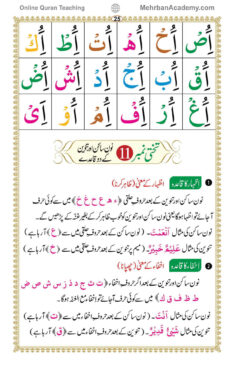 Online Quran Teaching
MehranAcademy.com
25
اَصْ اَحْ اَھْ اَتْ اَطْ اَكْ
اَقْ اَبْ اَجْ اَدْ اَشْ اَضْ
اَغْ اَرْ اَفْ اَمْ اَوْ اَیْ
تختی نمبر 11 نون ساکن اور تنوین
کے دو قاعدے
1 اظہار کا قاعدہ اظہار کے معنی (ظاہر کرنا)
نون ساکن اور تنوین کے بعد حروف حلقی (ء ھ ع ح غ خ) میں سے کوئی حرف
آجائے تو اظہار ہوگا یعنی نون ساکن اور تنوین کو خوب ظاہر کر کے بغیر غنہ کے پڑھیں گے۔
نون ساکن کی مثال اَنْعَمْتَ۔ (نون ساکن کے بعد حروف حلقی میں سے (ع) آ رہا ہے)
تنوین کی مثال عَلِیْمٌ خَبِیْرٌ۔ (میم پر تنوین کے بعد حروف حلقی میں سے (خ) آ رہا ہے)
2 اخفاء کا قاعدہ اخفاء کے معنی (چھپانا)
نون ساکن اور تنوین کے بعد اگر حروف اخفاء (ت ث ج د ذ ز س ش ص ض
ط ظ ف ق ك) میں سے کوئی حرف آجائے تو اخفاء مع الغنہ ہوگا۔
نون ساکن کی مثال اَنْتَ۔ (نون ساکن کے بعد حروف اخفاء میں سے (ت) آ رہا ہے)
تنوین کی مثال شَیْئٍ قَدِیْرٌ۔ (تنوین کے بعد حروف اخفاء میں سے (ق) آ رہا ہے)